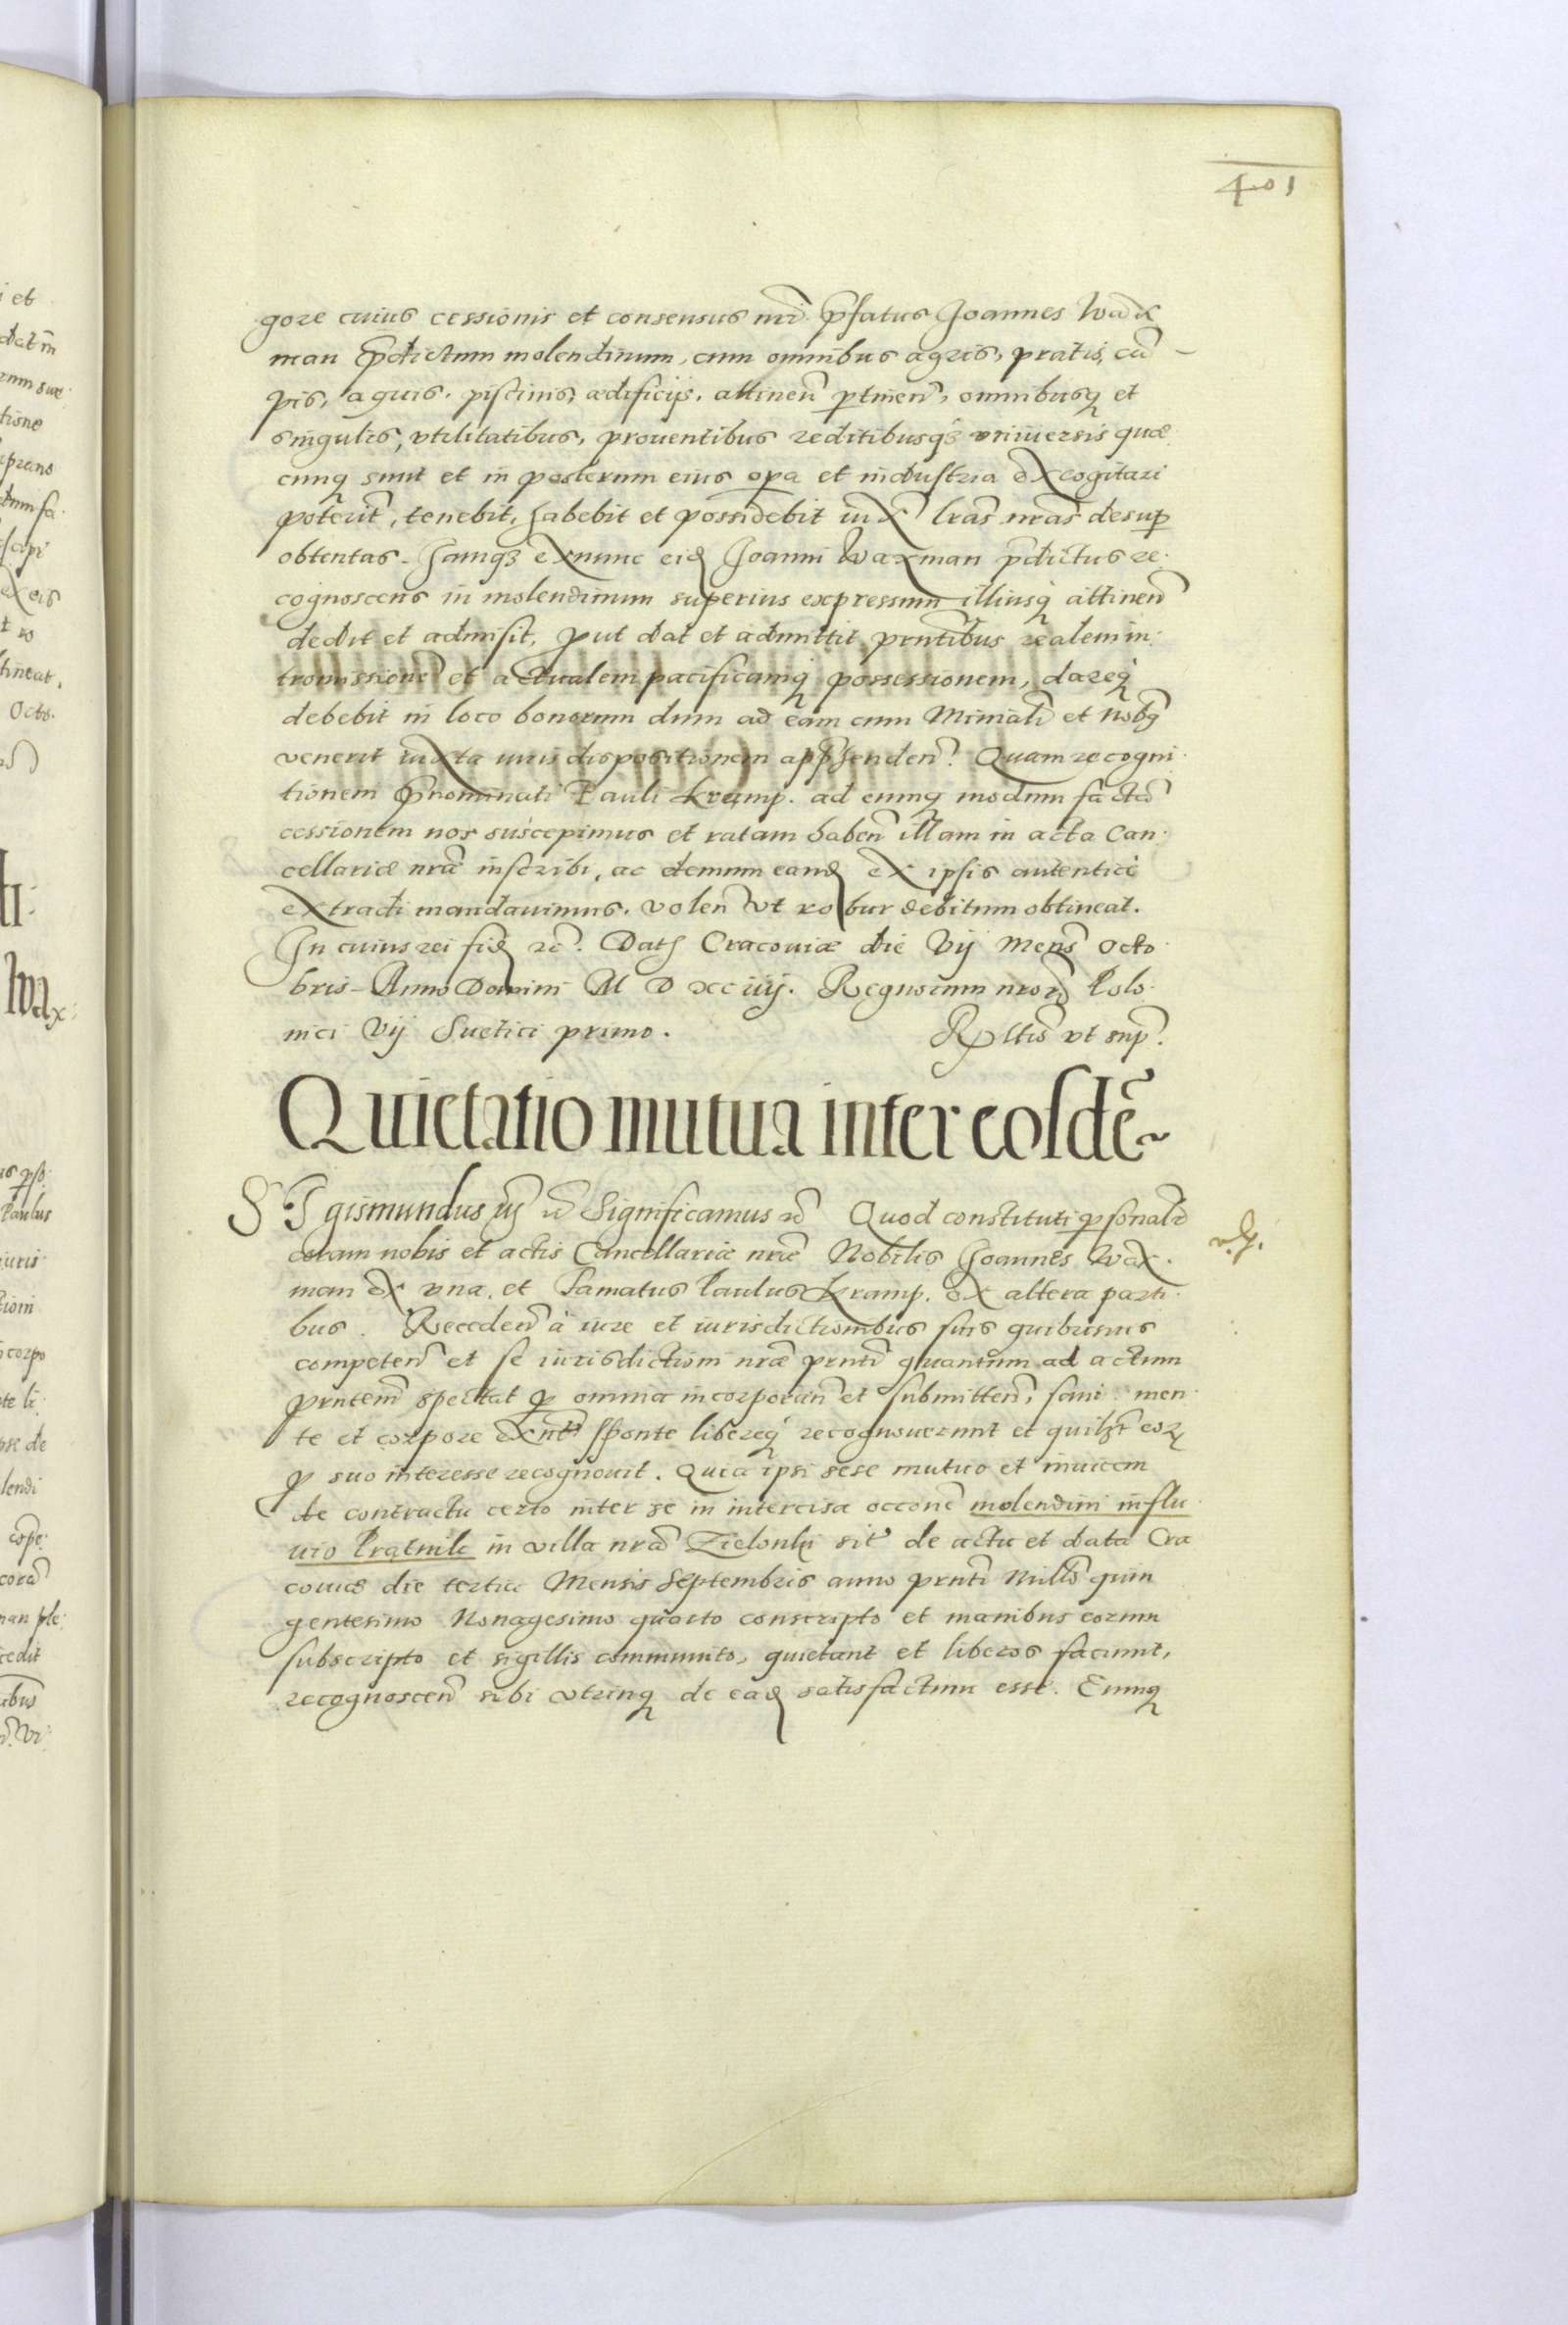 401
gore cuius cessionis et consensus nri p̃fatus Joannes Wax
man p̃dictum molendinum, cum omnibus agris, pratis, cã
pis, aquis, piscinis, ædificijs, attineñ ptineñ, omnibusq̧ et
singulis, vtilitatibus, prouentibus reditibusq̧ vniuersis quæ
cunq̧ sunt et in posterum eius opa et industria excogitari
poterit, tenebit, habebit et possidebit iuxã lras nras desup
obtentas. Jamq̧ exnunc eid Joanni Waxman p̃dictus re
cognoscens in molendinum superius expressum illiusq̧ attineñ
dedit et admisit, put dat et admittit prntibus realem in
tromissionẽ et actualem pacificamq̧ possessionem, dareq̧
debebit in loco bonorum dum ad eam cum Ministli et Nob
venerit iuxta iuris dispositionem app̃henden. Quam recogni
tionem p̃nominati Pauli Kramp. ad eumq̧ modum factã
cessionem nos suscepimus et ratam habeñ illam in acta Can
cellariæ nræ inscribi, ac demum eand ex ipsis autenticè
extradi mandauimus. voleñ vt robur debitum obtineat.
In cuius rei fid rc. Dat Cracouiæ die Vij Mens Octo
bris Anno Domini M D xciiij. Regnorum nrorũ Polo
nici Vij Suetici primo. Rltio vt sup.
Quietatio mutua inter eosdẽ
SIgismundus iijus rc Significamus rc Quod constituti psonalr
coram nobis et actis Cancellariæ nræ Nobilis Joannes Wax
man ex vna, et Famatus Paulus Kramp. ex altera parti
bus. Recedeñ à iure et iurisdictionibus suis quibusuis
competeñ et se iurisdictioni nræ prnti quantum ad actum
prntem spectat p omnia incorporañ et submitteñ, sani men
te et corpore exnt sponte libereq̧ recognouerunt et quilibt eorũ
p suo interesse recognouit. Quia ipsi sese mutuo et inuicem
de contractu certo inter se in intercisa occone molendini in flu
uio Prątnik in villa nra Zielonki sit de actu et data Cra
couiæ die tertia Mensis Septembris anno prnti Millo quin
gentesimo Nonagesimo quarto conscripto et manibus eorum
subscripto et sigillis communito, quietant et liberos faciunt,
recognosceñ sibi vtrinq̧ de ead satisfactum esse. Eumq̧